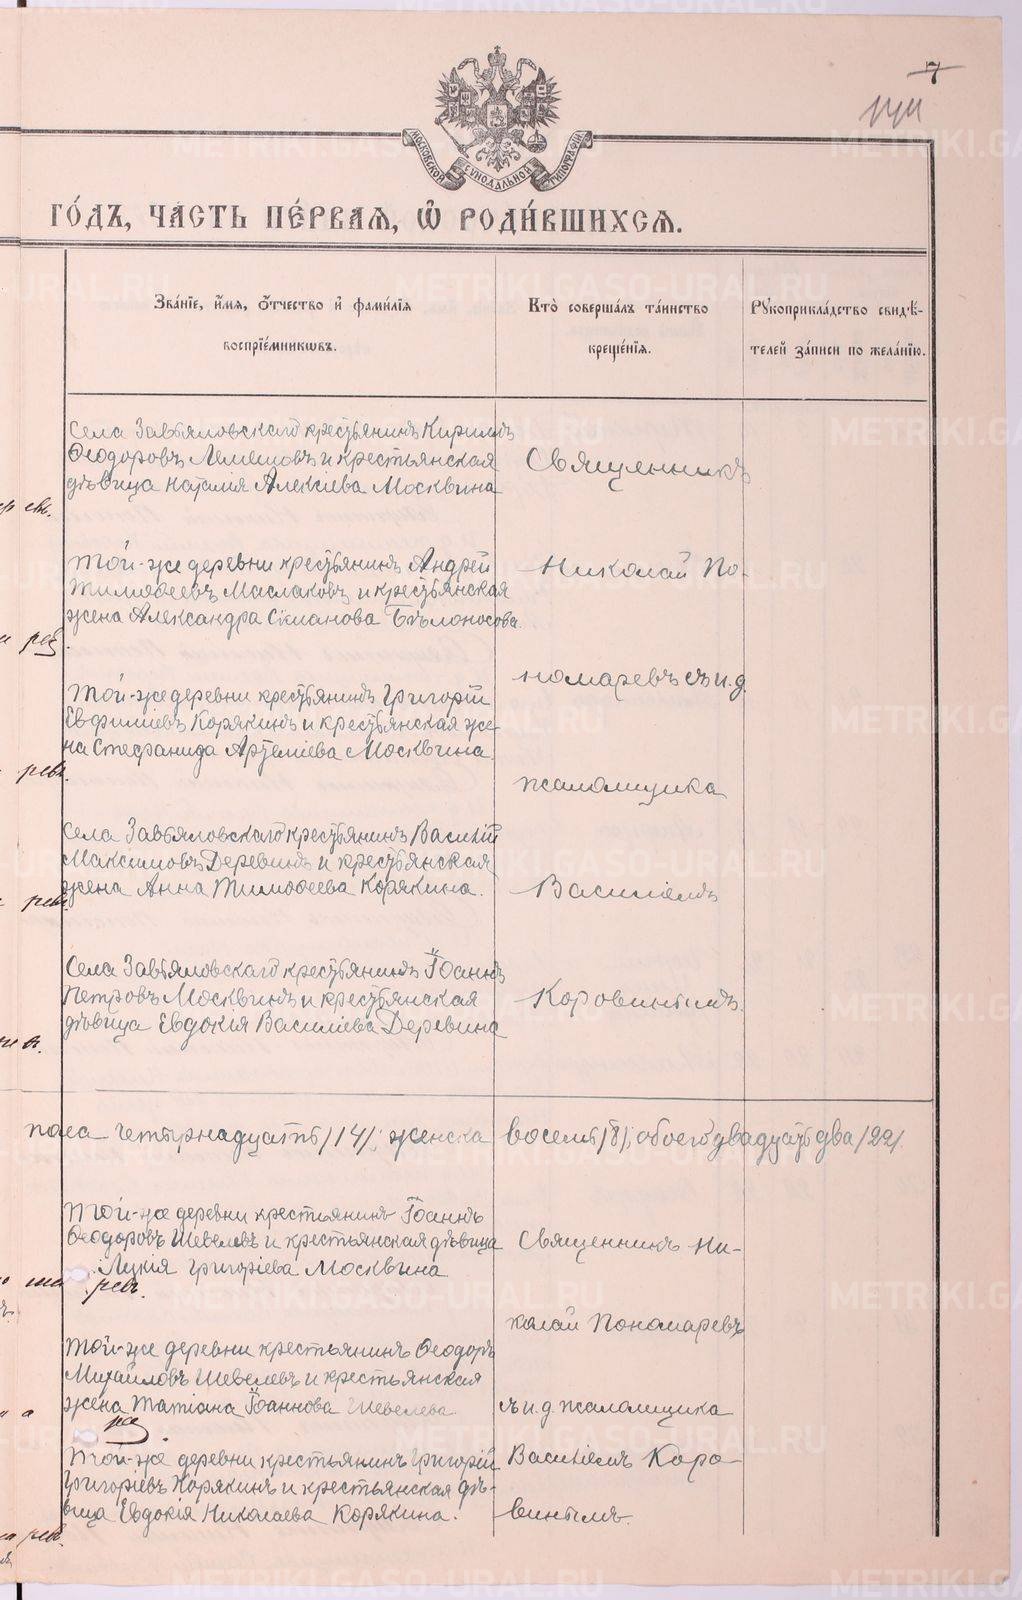 7
МОСКОВСКОЙ СУНОДАЛЬНОЙ ТИПОГРАФІИ
ГО́ДЪ, ЧА́СТЬ ПЕ́РВАѦ, Ѽ РОДИ́ВШИХСѦ.
Зва́нїе, и҆́мѧ, ѻ҆́тчество и҆ фами́лїѧ
воспрїе́мникѡвъ.
Кто̀ соверша́лъ та́инство
креще́нїѧ.
Рꙋкоприкла́дство свидѣ́-
телей за́писи по жела́нїю.
Села Завьяловскаго крестьянинъ Кириллъ
Ѳеодоровъ Лемешовъ и крестьянская
дѣвица Наталія Алексіева Москвина
Той-же деревни крестьянинъ Андрей
Тимоѳеевъ Маслаковъ и крестьянская
жена Александра Сіманова Бѣлоносова.
Той-же деревни крестьянинъ Григорій
Евфиміевъ Корякинъ и крестьянская же-
на Стефанида Артеміева Москвина.
Села Завьяловскаго крестьянинъ Василій
Максимовъ Деревинъ и крестьянская
жена Анна Тимоѳеева Корякина.
Села Завьяловскаго крестьянинъ Іоаннъ
Петровъ Москвинъ и крестьянская
дѣвица Евдокія Василіева Деревина
Священникъ
Николай По-
номаревъ съ и. д.
псаломщика
Василіемъ
Коровинымъ.
пола четырнадцать /14/, женска восемь /8/, обоего двадцать два /22/.
Той-же деревни крестьянинъ Іоаннъ
Ѳеодоровъ Шевелевъ и крестьянская дѣвица
Лукія Григоріева Москвина
рев.
Той-же деревни крестьянинъ Ѳеодоръ
Михайловъ Шевелевъ и крестьянская
жена Татіана Іоаннова Шевелева
Той-же деревни крестьянинъ Григорій
Григоріевъ Корякинъ и крестьянская дѣ-
вица Евдокія Николаева Корякина.
Священникъ Ни-
колай Пономаревъ
съ и. д. псаломщика
Василіемъ Коро-
винымъ.
METRIKI.GASO-URAL.RU